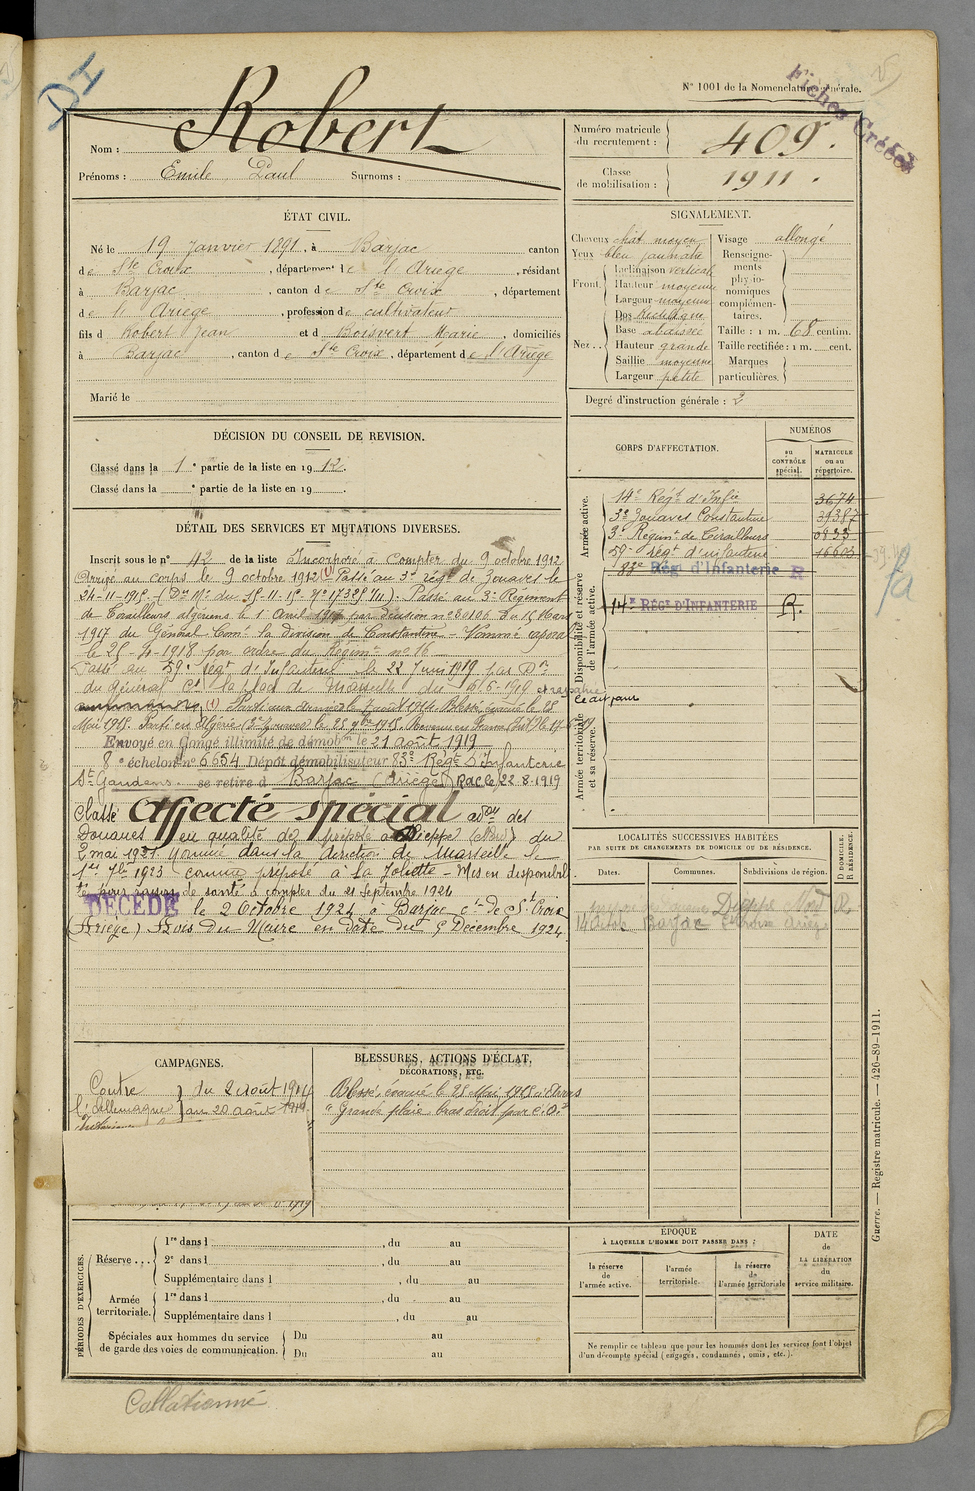 DI
N° 1001 de la Nomenclature générale.
Fiches Créées
Nom : Robert
Prénoms : Emile Paul Surnoms :
Numéro matricule du recrutement : 409.
Classe de mobilisation : 1911.
ÉTAT CIVIL.
Né le 19 Janvier 1891, à Barjac canton
de Ste Croix, département de l'Ariège, résidant
à Barjac, canton de Ste Croix, département
de l'Ariège, profession de cultivateur
fils de Robert Jean et de Boisvert Marie, domiciliés
à Barjac, canton de Ste Croix, département de l'Ariège
Marié le
SIGNALEMENT.
Cheveux chât moyen
Yeux bleu jaunatre
Front. Inclinaison verticale
Hauteur moyenne
Largeur moyenne
Nez.. Dos Rectiligne
Base abaissée
Hauteur grande
Saillie moyenne
Largeur petite
Visage allongé
Renseignements physionomiques complémentaires.
Taille : 1 m. 68 centim.
Taille rectifiée : 1 m. cent.
Marques particulières.
Degré d'instruction générale : 2
DÉCISION DU CONSEIL DE REVISION.
Classé dans la 1e partie de la liste en 1912.
Classé dans la e partie de la liste en 19 .
CORPS D'AFFECTATION.
NUMÉROS
au CONTRÔLE spécial.
MATRICULE ou au répertoire.
Armée active.
14e Régt d'Infie 3674
3e Zouaves Constantine 39387
3e Régimt de Tirailleurs
59e régt d'infanterie 16603
Disponibilité et réserve de l'armée active.
83e Régt d'Infanterie R
14e RÉGt D'INFANTERIE R.
Armée territoriale et sa réserve.
fa
DÉTAIL DES SERVICES ET MUTATIONS DIVERSES.
Inscrit sous le n° 42 de la liste Incorporé à compter du 9 octobre 1912
Arrivé au corps le 9 octobre 1912 (1) Passé au 3e régt de Zouaves le
24-11-1915. Passé au 3e Régiment
de Tirailleurs algériens le 1e Avril par décision n° du 15 Mars
1917 du Général Comt la division de Constantine - Nommé caporal
le 25-4-1918 par ordre du Régimt n° 16
Passé au 59e régt d'Infanterie le 22 Juin 1919 par Don
du général Ct la Sod de Marseille du 1919 et rayé
ce dit jour
(1) Parti aux armées le août 1914. Blessé, évacué le 28
Mai 1915. Parti en Algérie (3e Zouaves) le 25
Envoyé en Congé illimité de démobon le 21 août 1919
8e échelon n° 6654 Dépot démobilisateur 83e Régt D'Infanterie
St Gaudens. se retire à Barjac (Ariège) Rac le 22.8.1919
Classé Affecté spécial adon des
Douanes en qualité de préposé à Dieppe (Nord) du
2 mai 1921. Nommé dans la direction de Marseille le
1er 7bre 1923 comme préposé à La Joliette - Mis en disponibili
té pour raison de santé à compter du 21 Septembre 1924
DÉCÉDÉ le 2 Octobre 1924 à Barjac con de Ste Croix
(Ariège) Avis du Maire en date du 5 Décembre 1924.
LOCALITÉS SUCCESSIVES HABITÉES
PAR SUITE DE CHANGEMENTS DE DOMICILE OU DE RÉSIDENCE.
Dates. Communes. Subdivisions de région. D DOMICILE. R RÉSIDENCE.
Dieppe Nord R.
Barjac Ste Croix Ariège
CAMPAGNES.
Contre l'Allemagne du 2 août 1914
au 20 août 1919.
BLESSURES, ACTIONS D'ÉCLAT,
DÉCORATIONS, ETC.
Blessé, évacué le 28 Mai 1915
"Grande plaie bras droit par é. o."
PÉRIODES D'EXERCICES.
Réserve... 1re dans l , du au
2e dans l , du au
Supplémentaire dans l , du au
Armée territoriale. 1re dans l , du au
Supplémentaire dans l , du au
Spéciales aux hommes du service de garde des voies de communication. Du au
Du au
ÉPOQUE
À LAQUELLE L'HOMME DOIT PASSER DANS :
la réserve de l'armée active.
l'armée territoriale.
la réserve de l'armée territoriale
DATE de LA LIBÉRATION du service militaire.
Ne remplir ce tableau que pour les hommes dont les services font l'objet
d'un décompte spécial (engagés, condamnés, omis, etc.).
Guerre. — Registre matricule. — 426-89-1911.
Collationné